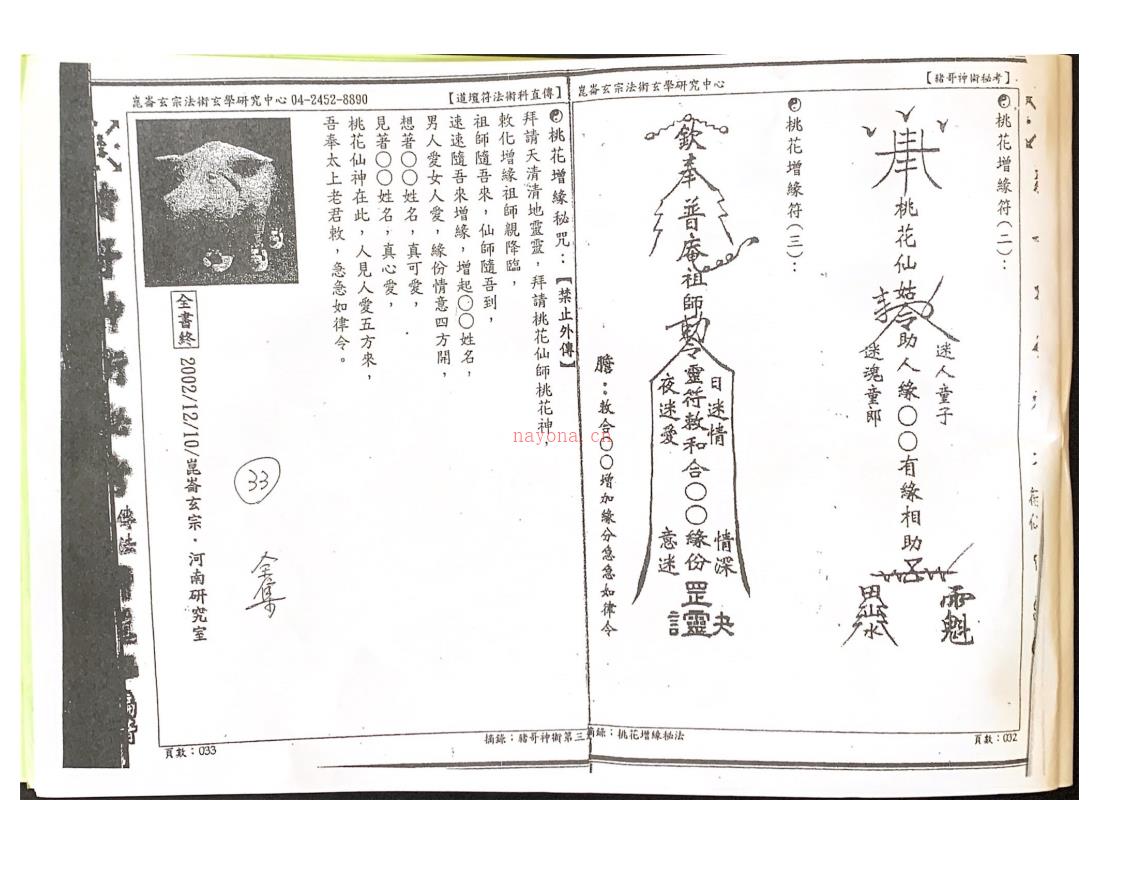 【豬哥神術秘考】
桃花增緣符(二)：
桃花仙姑令助人緣○○有緣相助
迷人童子
迷魂童郎
魁
崑崙玄宗法術玄學研究中心
桃花增緣符(三)：
欽奉普庵祖師勅令靈符敕和合○○緣份罡靈
日迷情 情深
夜迷愛 意迷
膽：敕合○○增加緣分急急如律令
摘錄：桃花增緣秘法
頁數：032
崑崙玄宗法術玄學研究中心 04-2452-8890
【道壇符法術科直傳】
桃花增緣秘咒：【禁止外傳】
拜請天清清地靈靈，拜請桃花仙師桃花神，
敕化增緣祖師親降臨，
祖師隨吾來，仙師隨吾到，
速速隨吾來增緣，增起○○姓名，
男人愛女人愛，緣份情意四方開，
想著○○姓名，真可愛，
見著○○姓名，真心愛，
桃花仙神在此，人見人愛五方來，
吾奉太上老君敕，急急如律令。
全書終 2002/12/10/崑崙玄宗·河南研究室
33
全集
摘錄：豬哥神術第三
頁數：033
nayona.cn